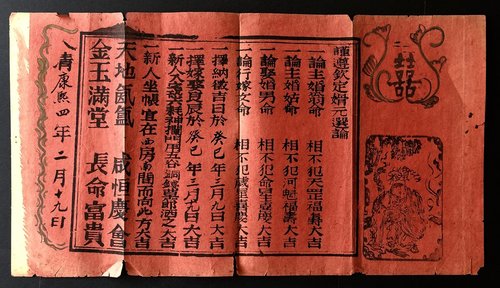 囍
謹遵欽定婿元選論
一論主婚翁命 相不犯天罡福壽大吉
一論主婚姑命 相不犯河魁福壽大吉
一論娶婚男命 相不犯命星喜慶大吉
一論行嫁女命 相不犯歲星喜慶大吉
一擇納徵吉日良於癸巳年三月九日大吉
一擇嫁娶良於癸巳年三月九日大吉
一新人入宅攔門用五谷銅錢草節洒之大吉
一新人坐帳宜在西房南間面向北方大吉
天地氤氳 咸恒慶會
金玉滿堂 長命富貴
清康熙四年二月十九日